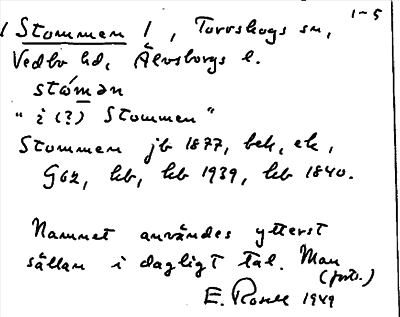 1-5
1 Stommen 1, Torrskogs sn,
Vedbo hd, Älvsborgs l.
stómən
"i (?) Stommen"
Stommen jb 1877, bek, ek,
G62, kb, hb 1939, hb 1840.
Namnet användes ytterst
sällan i dagligt tal. Man
(forts.)
E. 1949